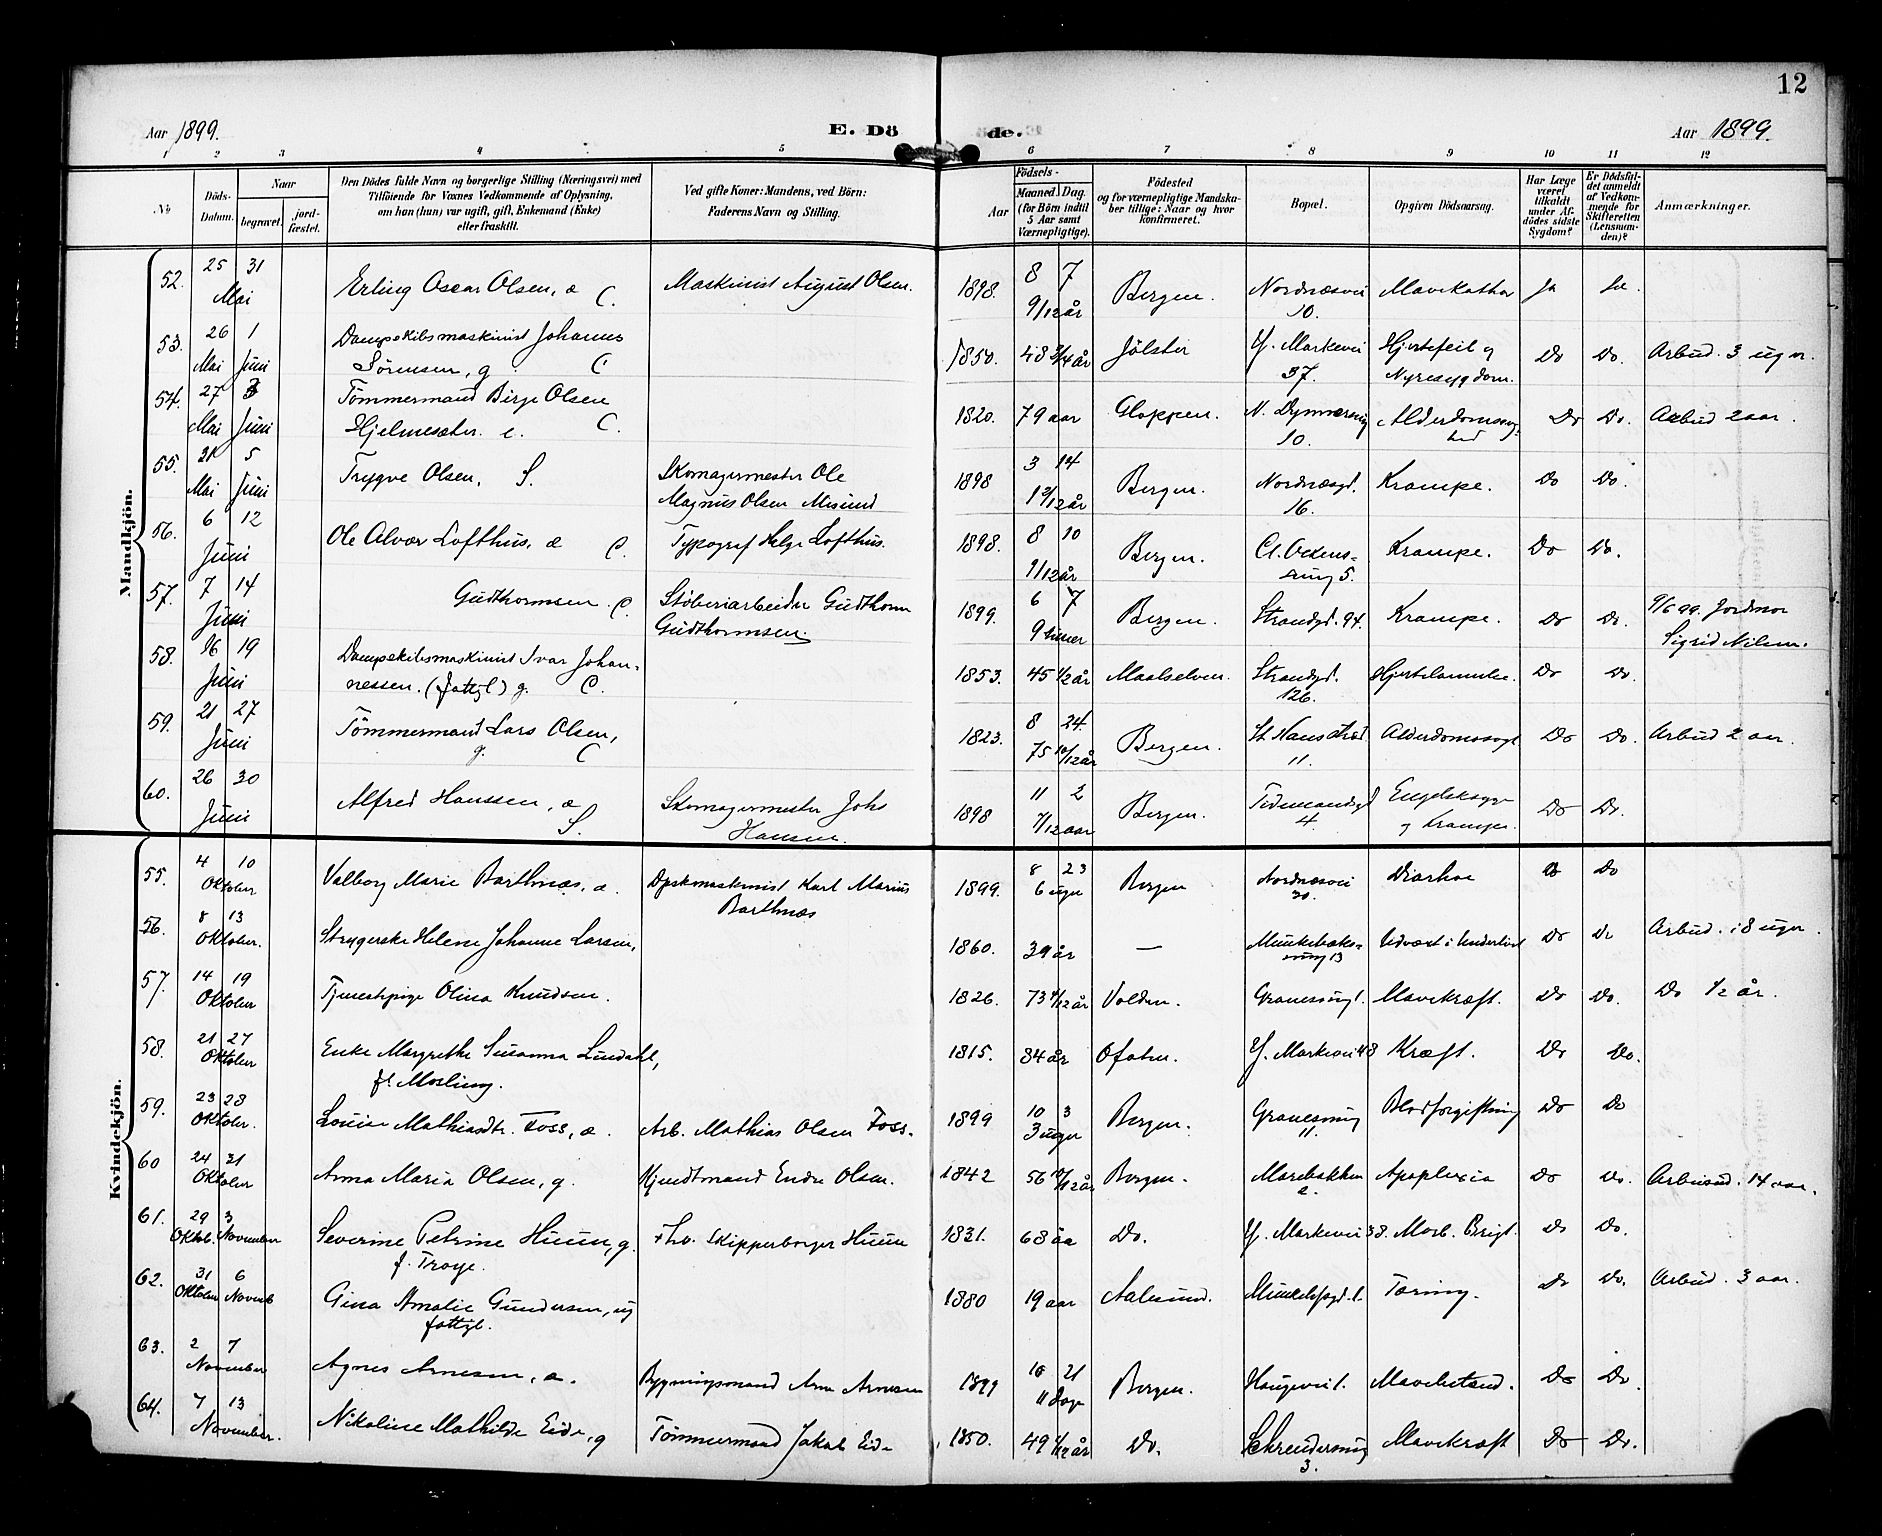 12
Aar 1899. E. Dö de. Aar 1899.
1 2 3 4 5 6 7 8 9 10 11 12
No Döds-Datum. Naar begravet. jord-fæstet. Den Dödes fulde Navn og borgerlige Stilling (Næringsvei) med Tilföiende for Voxnes Vedkommende af Oplysning, om han (hun) var ugift, gift, Enkemand (Enke) eller fraskilt. Ved gifte Koner: Mandens, ved Börn: Faderens Navn og Stilling. Aar Födsels- Maaned Dag. (for Börn indtil 5 Aar samt Værnepligtige). Födested og for værnepligtige Mandskaber tillige: Naar og hvor konfirmeret. Bopæl. Opgiven Dödsaarsag. Har Læge været tilkaldt under Afdödes sidste Sygdom? Er Dödsfaldet anmeldt af Vedkommende for Skifteretten (Lensmanden)? Anmærkninger.
Mandkjön.
52. 25 31 Mai Erling Oscar Olsen, æ C. Maskinist August Olsen. 1898. 8 7 9/12 år Bergen. Nordnæsvei 10. Mavekathar Ja Ja
53. 26 Mai 1 Juni Dampskibsmaskinist Johannes
Sörensen, g C 1850. 48 3/4 år Jölster Y. Markevei 37. Hjertefeil og Nyresygdom. Do Do. Arbud. 3 uger.
54. 27 Mai 3 Juni Tömmermand Birge Olsen
Hjelmesæter. e. C. 1820. 79 aar Gloppen. 10. Do Do. Arbud 2 aar.
55. 31 Mai 5 Juni Trygve Olsen, S. Skomagermester Ole
Magnus Olsen Misund 1898 3 14 1 2/12 år Bergen. Nordnæsgd. 16. Krampe. Do Do.
56. 6 12 Juni Ole Alvær Lofthus, æ C. Typograf Helge Lofthus. 1898. 8 10 9/12 år Bergen. Cl. Ockens-smug 5. Krampe. Do Do.
57. 7 14 Juni Gudthormsen. C. Stöberiarbeider Gudthorm
Gudthormsen. 1899. 6 7 9 timer Bergen. Strandgd. 94. Krampe. Do Do. 9/6 99. Jordmor
Sigrid Nilsen.
58. 16 19 Juni Dampskibsmaskinist Ivar Johan-
nessen. (fattgl) g. C. 1853. 45 1/2 år Maalselven. Strandgd. 126. Hjertelammelse. Do Do.
59. 21 27 Juni Tömmermand Lars Olsen,
g. C 1823. 8 24. 75 10/12 år Bergen. St Hansstræd 11. Alderdomssygd Do Do. Arbud 2 aar.
60. 26 30 Juni Alfred Hanssen, æ S. Skomagermester Johs
Hansen. 1898 11 2 7/12 aar Bergen. Tidemandsgd 4. Engelsksyge og Krampe. Do Do.
Kvindekjön.
55. 4 10 Oktober Valborg Marie Barthnæs, æ. Dpskmaskinist Karl Marius
Barthnæs 1899. 8 23 6 uger Bergen Nordnæsvei 30. Diarhoe Do Do
56. 8 13 Oktober. Strygerske Helene Johanne Larsen, 1860. 39 år — Munkebæks-smug 13 Udvæxt i Underlivet Do Do Arbud. i 8 uger.
57. 14 19 Oktober Tjenestepige Olina Knudsen. 1826. 73 4/12 år Volden. Gravesmug 1. Mavekræft. Do Do. Do 1/2 år.
58. 21 27 Oktober Enke Margrethe Susanna Lindahl,
f. Morling. 1815. 84 år Ofoten. Y. Markevei 48 Kræft. Do Do.
59. 23 28 Oktober. Louise Mathiasdtr. Foss, æ. Arb. Mathias Olsen Foss. 1899 10 3 3 uger Bergen. Gravesmug 11. Blodforgiftning Do Do
60 24 31 Oktober Anna Maria Olsen, g. Kjendtmand Endre Olsen. 1842 56 10/12 år Bergen. Marebakken 2. Apoplexia Do Do. Arbeisud. 14 aar.
61. 29 Oktob. 3 November Severine Petrine Huun, g.
f. Troye. Fhv. Skipperborger Huun 1831. 68 åa Do. Y. Markevei 38. Morb. Brigt. Do Do.
62. 31 Oktober 6 Novemb Gina Amalie Gundersen, ug
fattgl. 1880 19 aar Aalesund. Tæring. Do Do. Arbud. 3 aar.
63. 2 7 November Agnes Arnesen, æ. Bygningsmand Arne Arnesen 1899 10 21 11 Dage Bergen. Haugevei 1. Mavebetænd. Do Do.
64. 7 13 November. Nikoline Mathilde Eide, g Tömmermand Jakob Eide 1850. 49 1/12 år Do. Schreudersmug 3. Mavekræft Do Do.